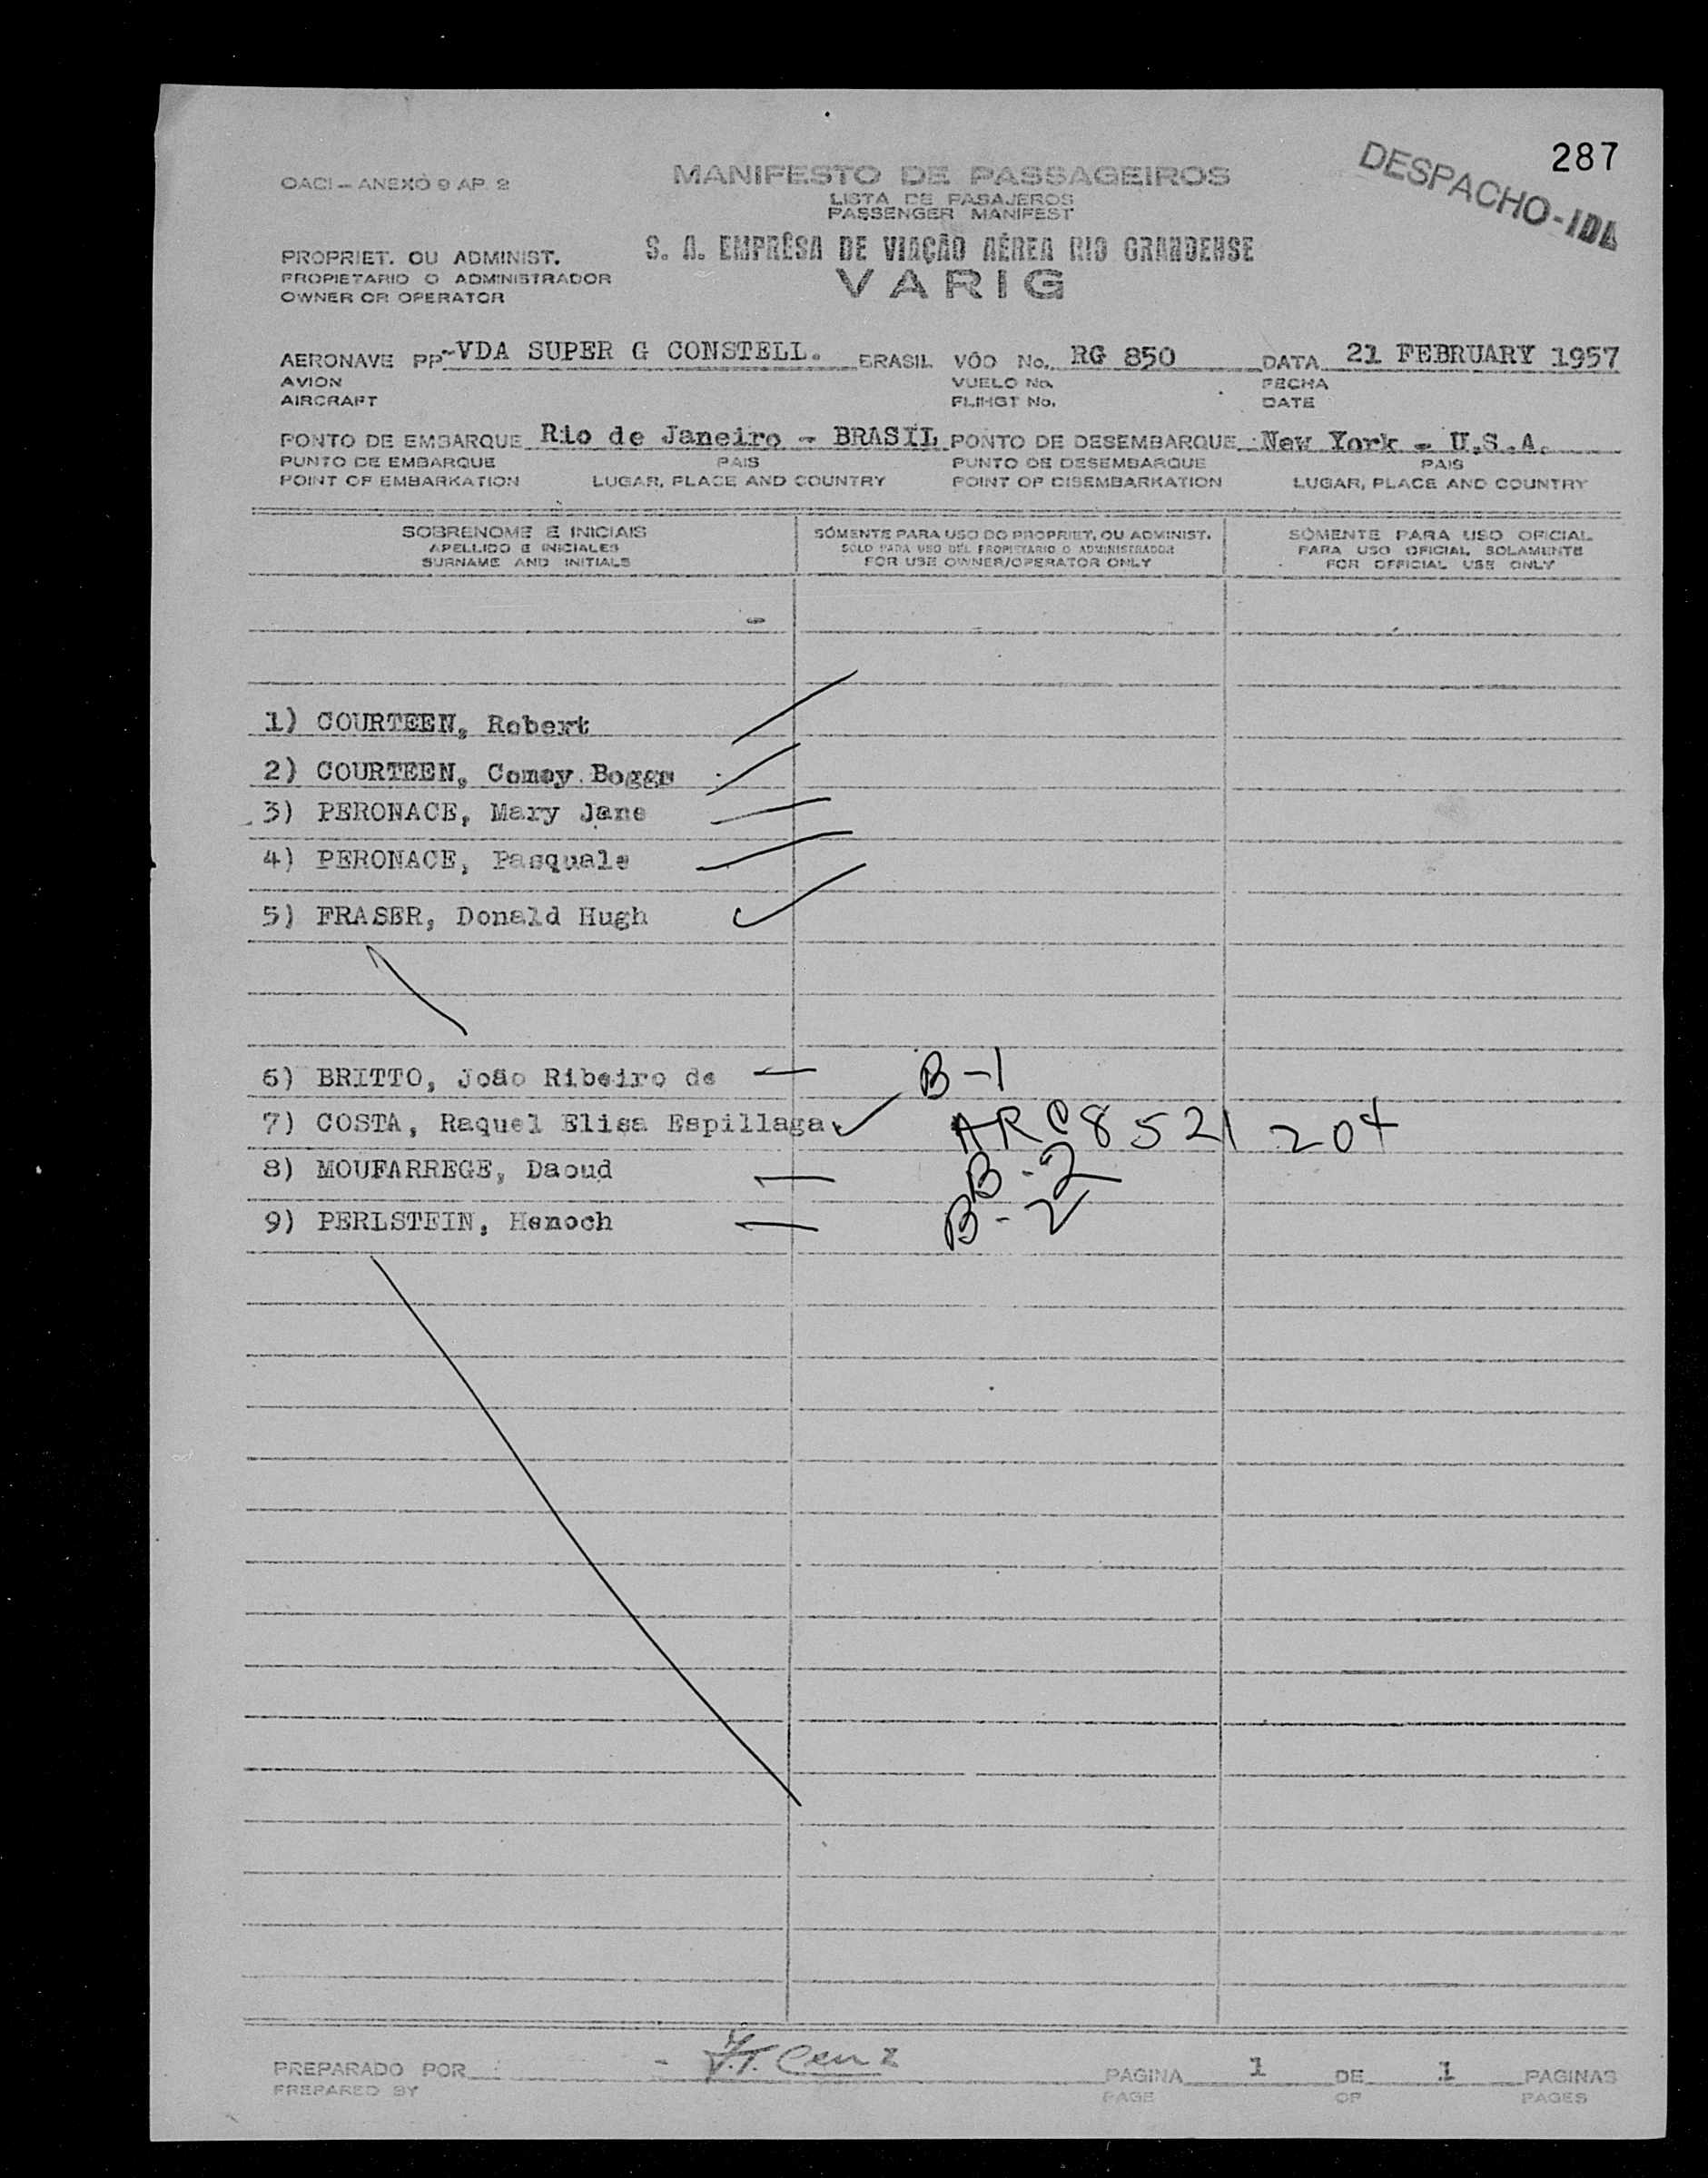 287
DESPACHO-IDA
OACI - ANEXO 9 AP. 2
MANIFESTO DE PASSAGEIROS
LISTA DE PASAJEROS
PASSENGER MANIFEST
PROPRIET. OU ADMINIST.
PROPIETARIO O ADMINISTRADOR
OWNER OR OPERATOR
S. A. EMPRÊSA DE VIAÇÃO AÉREA RIO GRANDENSE
VARIG
AERONAVE PP-VDA SUPER G CONSTELL. BRASIL VÔO No. RG 850 DATA 21 FEBRUARY 1957
AVION VUELO No. FECHA
AIRCRAFT FLIHGT No. DATE
PONTO DE EMBARQUE Rio de Janeiro - BRASIL PONTO DE DESEMBARQUE New York - U.S.A.
PUNTO DE EMBARQUE PAIS PUNTO DE DESEMBARQUE PAIS
POINT OF EMBARKATION LUGAR, PLACE AND COUNTRY POINT OF DISEMBARKATION LUGAR, PLACE AND COUNTRY
SOBRENOME E INICIAIS SÓMENTE PARA USO DO PROPRIET. OU ADMINIST. SÓMENTE PARA USO OFICIAL
APELLIDO E INICIALES SOLO PARA USO DEL PROPIETARIO O ADMINISTRADOR PARA USO OFICIAL SOLAMENTE
SURNAME AND INITIALS FOR USE OWNER/OPERATOR ONLY FOR OFFICIAL USE ONLY
1) COURTEEN, Robert
2) COURTEEN, Comey Boggs
3) PERONACE, Mary Jane
4) PERONACE, Pasquale
5) FRASER, Donald Hugh
6) BRITTO, João Ribeiro de B-1
7) COSTA, Raquel Elisa Espillaga ARC 8521 204
8) MOUFARREGE, Daoud B-2
9) PERLSTEIN, Henoch B-2
PREPARADO POR PAGINA 1 DE 1 PAGINAS
PREPARED BY PAGE OF PAGES